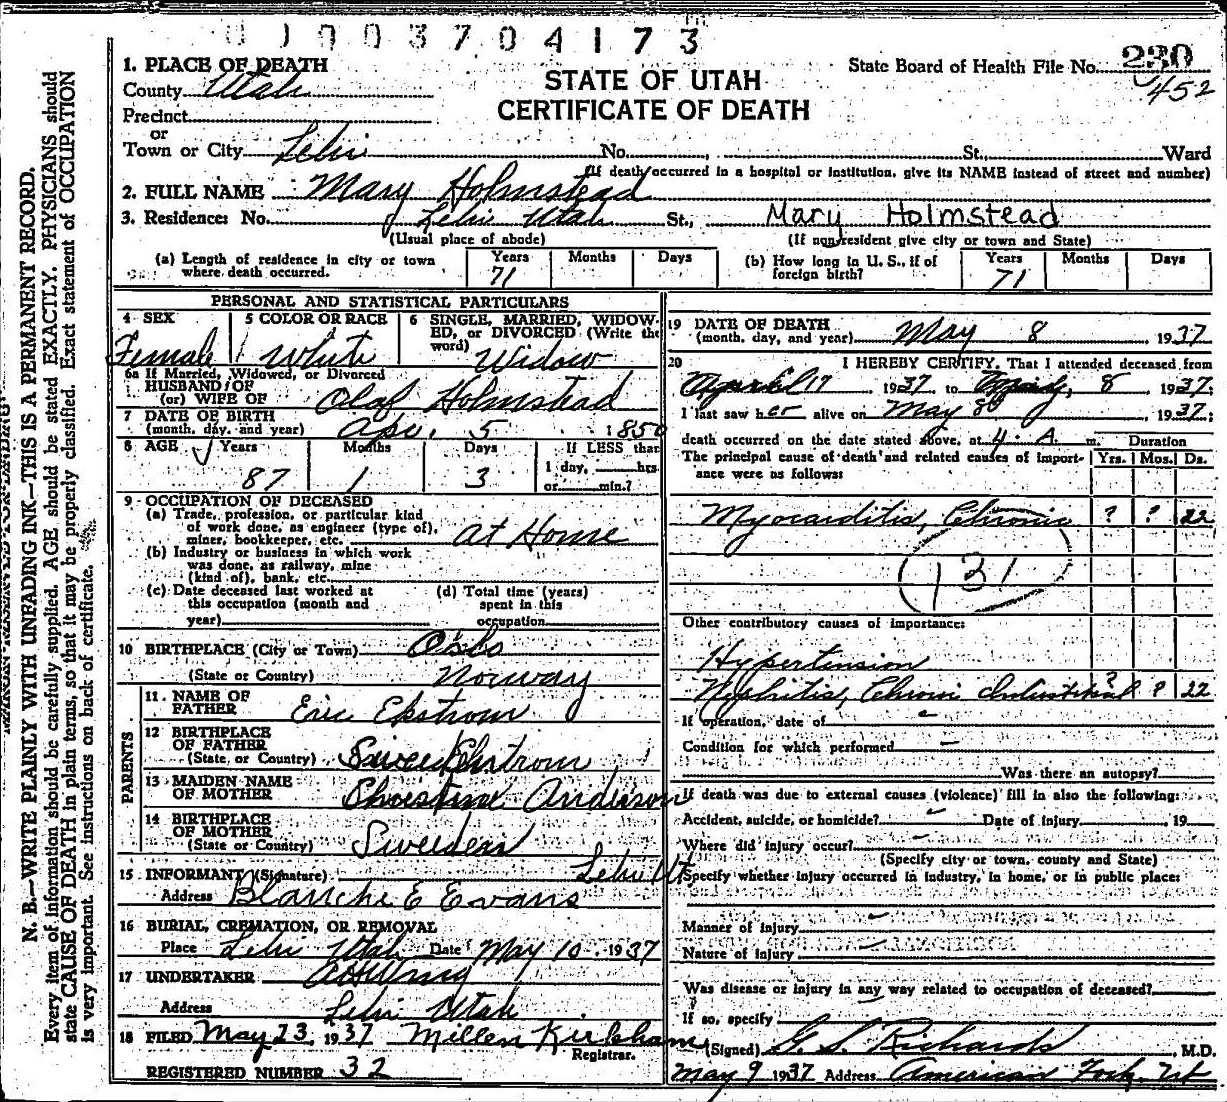 0 1 0 0 3 7 0 4 1 7 3
State Board of Health File No. 230
452
STATE OF UTAH
CERTIFICATE OF DEATH
1. PLACE OF DEATH
County Utah
Precinct
or
Town or City Lehi No. St., Ward
(If death occurred in a hospital or institution, give its NAME instead of street and number)
2. FULL NAME Mary Holmstead
3. Residence: No. Lehi Utah St., Mary Holmstead
(Usual place of abode) (If nonresident give city or town and State)
(a) Length of residence in city or town where death occurred. Years 71 Months Days
(b) How long in U. S., if of foreign birth? Years 71 Months Days
PERSONAL AND STATISTICAL PARTICULARS
4 SEX Female
5 COLOR OR RACE White
6 SINGLE, MARRIED, WIDOWED, or DIVORCED (Write the word) Widow
6a If Married, Widowed, or Divorced
HUSBAND OF
(or) WIFE OF Olof Holmstead
7 DATE OF BIRTH
(month, day, and year) Apr. 5 1850
8 AGE Years 87 Months 1 Days 3
If LESS than
1 day, hrs.
or min.?
9 OCCUPATION OF DECEASED
(a) Trade, profession, or particular kind
of work done, as engineer (type of),
miner, bookkeeper, etc. at Home
(b) Industry or business in which work
was done, as railway, mine
(kind of), bank, etc.
(c) Date deceased last worked at
this occupation (month and
year)
(d) Total time (years)
spent in this
occupation
10 BIRTHPLACE (City or Town) Oslo
(State or Country) Norway
PARENTS
11. NAME OF
FATHER Eric Ekstrom
12 BIRTHPLACE
OF FATHER
(State, or Country)
13 MAIDEN NAME
OF MOTHER Christine Anderson
14 BIRTHPLACE
OF MOTHER
(State or Country) Sweeden
15 INFORMANT (Signature) Lehi Ut
Address Blanche E Evans
16 BURIAL, CREMATION, OR REMOVAL
Place Lehi Utah Date May 10 1937
17 UNDERTAKER
Address Lehi Utah
18 FILED May 23, 1937 Millen Kirkham
Registrar.
REGISTERED NUMBER 32
19 DATE OF DEATH
(month, day, and year) May 8 1937
20 I HEREBY CERTIFY, That I attended deceased from
April 17 1937 to May, 8 1937;
I last saw her alive on May 8 1937;
death occurred on the date stated above, at 4. A. m.
Duration
The principal cause of death and related causes of importance were as follows: Yrs. Mos. Ds.
Myocarditis, Chronic ? ? 22
131
Other contributory causes of importance:
Hypertension
Nephritis, Chronic ? ? 22
If operation, date of -
Condition for which performed -
Was there an autopsy?
If death was due to external causes (violence) fill in also the following:
Accident, suicide, or homicide? Date of injury , 19
Where did injury occur?
(Specify city or town, county and State)
Specify whether injury occurred in industry, in home, or in public place:
Manner of injury
Nature of injury
Was disease or injury in any way related to occupation of deceased?
If so, specify
(Signed) G. S. Richards, M.D.
May 9 1937 Address American Fork, Ut
N. B.—WRITE PLAINLY WITH UNFADING INK—THIS IS A PERMANENT RECORD.
Every item of information should be carefully supplied. AGE should be stated EXACTLY. PHYSICIANS should
state CAUSE OF DEATH in plain terms, so that it may be properly classified. Exact statement of OCCUPATION
is very important. See instructions on back of certificate.